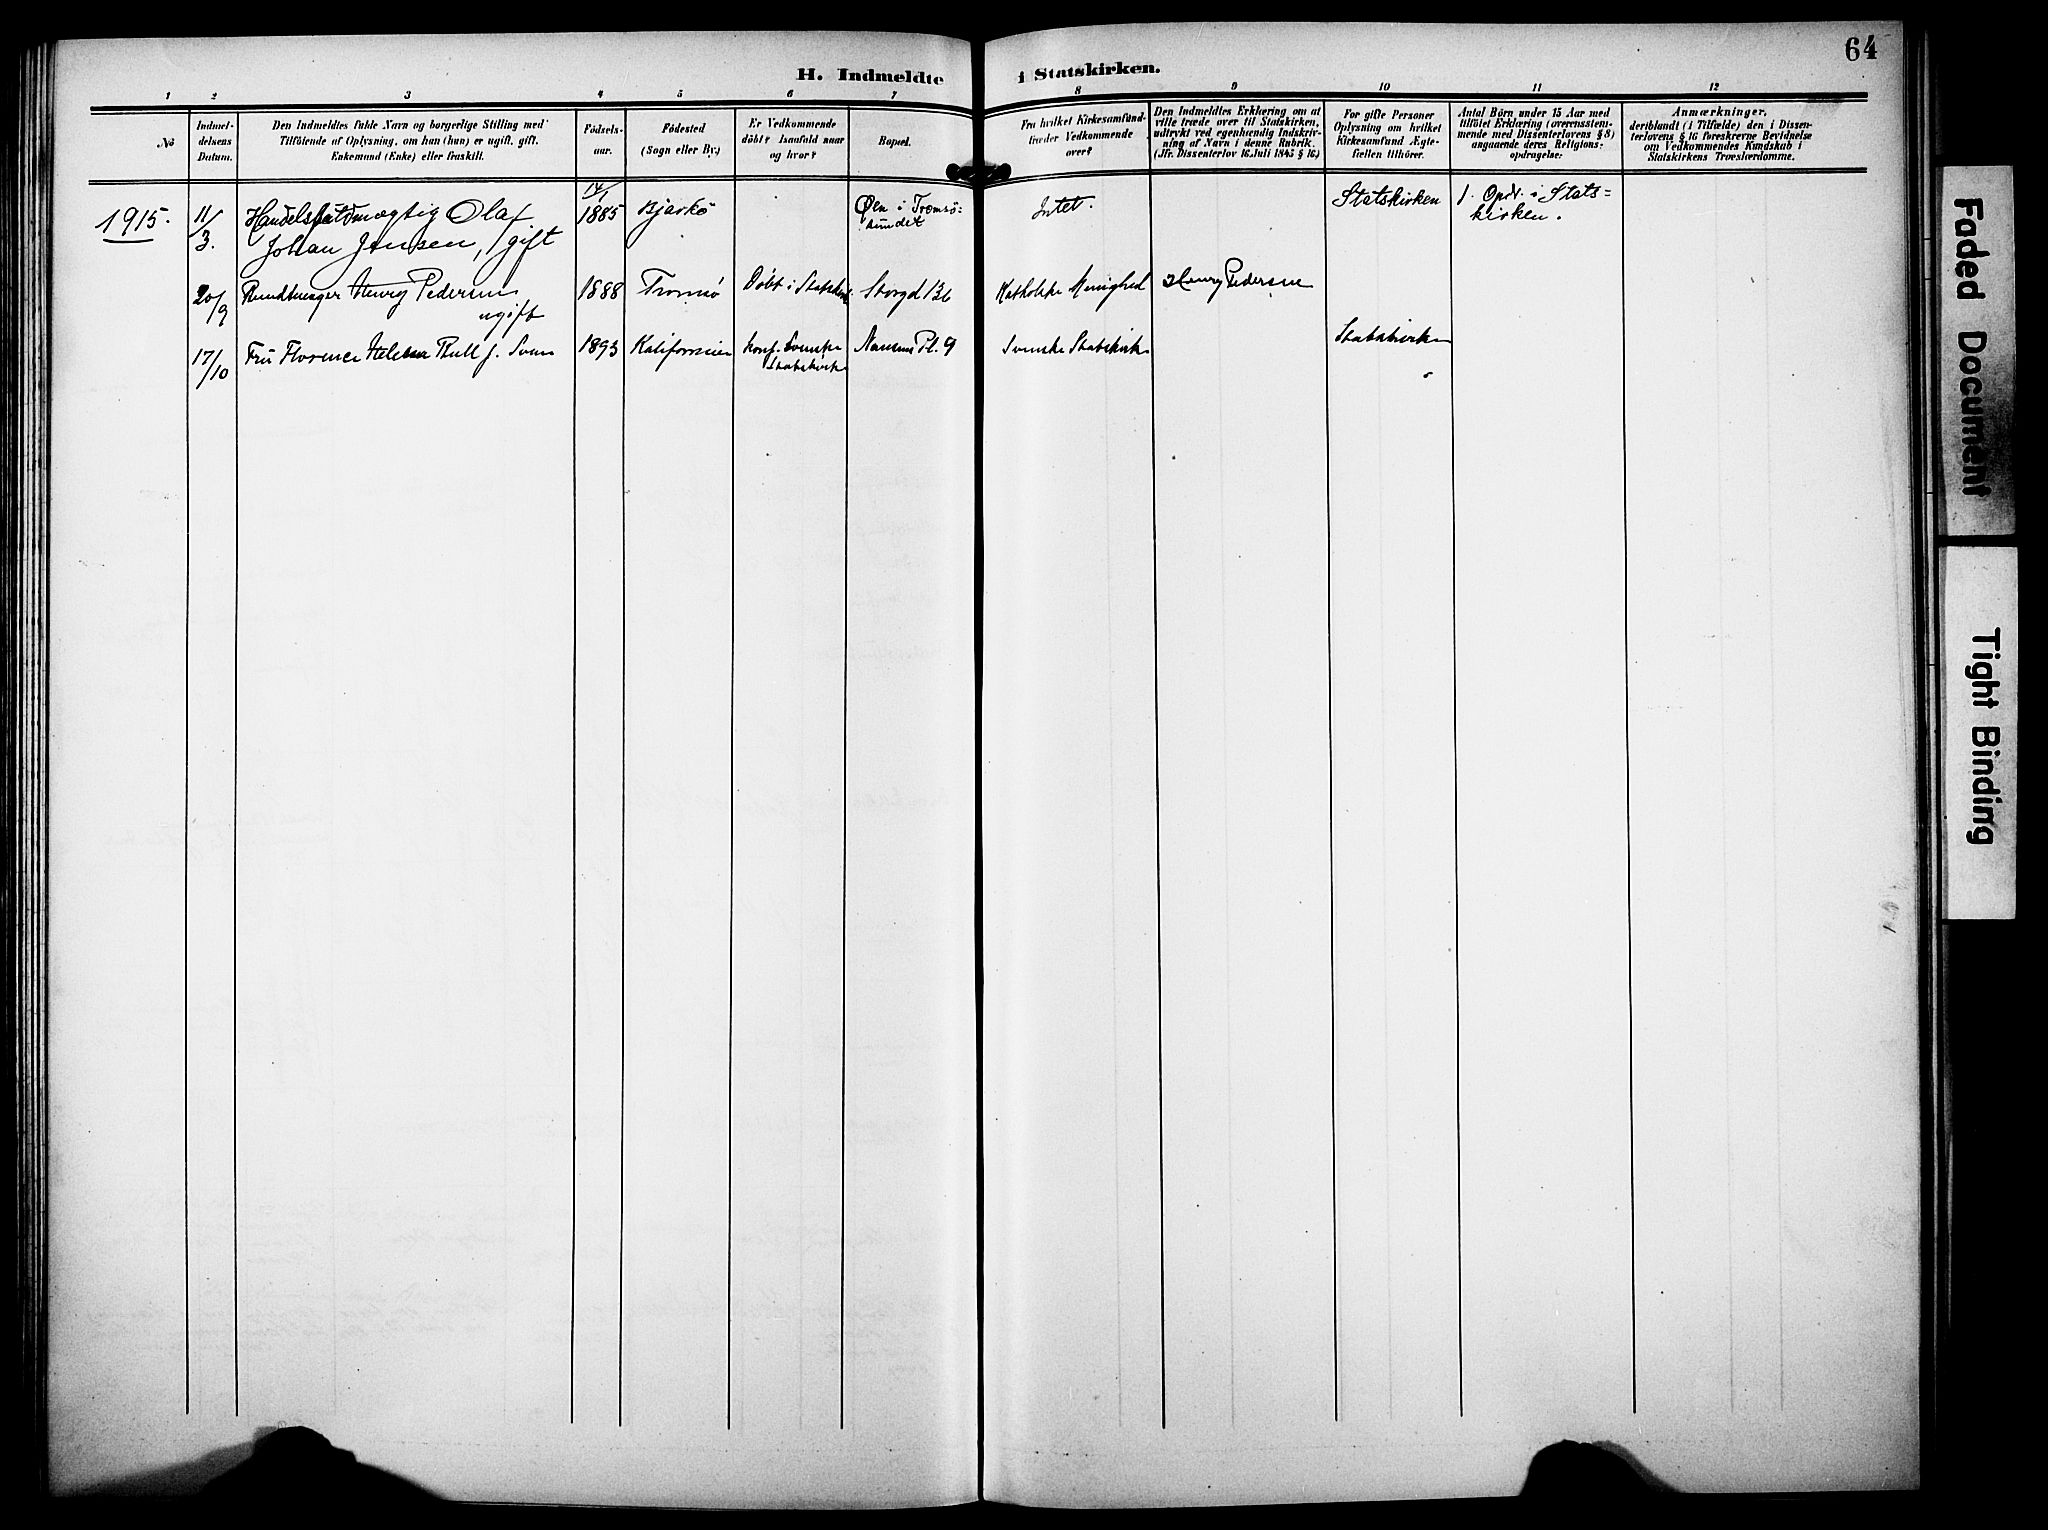 64
H. Indmeldte i Statskirken.
1 2 3 4 5 6 7 8 9 10 11 12
No
Indmel-
delsens
Datum.
Den Indmeldtes fulde Navn og borgerlige Stilling med
Tilföiende af Oplysning, om han (hun) er ugift, gift,
Enkemand (Enke) eller fraskilt.
Födsels-
aar.
Födested
(Sogn eller By.)
Er Vedkommende
döbt? Isaafald naar
og hvor?
Bopæl.
Fra hvilket Kirkesamfund
træder Vedkommende
over?
Den Indmeldtes Erklæring om at
ville træde over til Statskirken,
udtrykt ved egenhændig Indskriv-
ning af Navn i denne Rubrik.
(Jfr. Dissenterlov 16 Juli 1845 § 16.)
For gifte Personer
Oplysning om hvilket
Kirkesamfund Ægte-
fællen tilhörer.
Antal Börn under 15 Aar med
tilföiet Erklæring (overensstem-
mende med Dissenterlovens § 8)
angaaende deres Religions-
opdragelse:
Anmærkninger,
deriblandt (i Tilfælde) den i Dissen-
terlovens § 16 foreskrevne Bevidnelse
om Vedkommendes Kundskab i
Statskirkens Troeslærdomme.
1915.
11/3.
Handelsfuldmægtig Olaf
Johan Jensen, gift
14/1
1885
Bjarkö
Öen i Tromsö-
sundet
Intet.
Statskirken
1. Opdr. i Stats-
kirken.
20/9
Henry Pedersen
ugift
1888
Tromsö
Döbt i Statskirk
Storgd 136
Katholske Menighed
Henry Pedersen
17/10
Fru Florence Helena Bull f. Sven
1893
Kalifornien
konf. Svenske
Statskirke
Nansens Pl. 9
Svenske Statskirke
Statskirke
Faded Document
Tight Binding